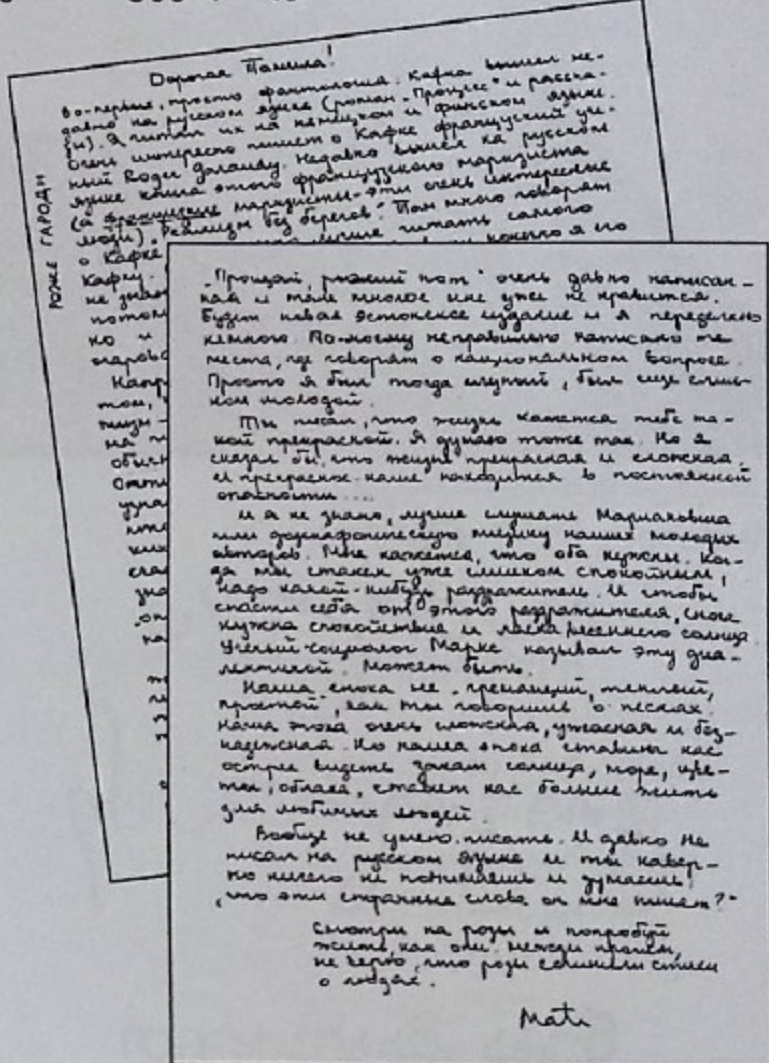 Дорогая Памела!
Во-первых, просто фантология. Кафка вышел не-
давно на русском языке (роман "Процесс" и расска-
зы). Я читал их на немецком и финском языке.
Очень интересно пишет о Кафке французский уче-
ный Роди Недавно вышел на русском
языке книга этого французского марксиста
(а французские марксисты - эти очень интересные
люди) "Реализм без берегов". Там много говорят
о Кафке лучше читать самого
Кафку. конечно я его
не знаю
потом
но и
очаров
РОЖЕ ГАРОДИ
Напр
той,
жизн
на
обыч
узна
зна
"он
на
"Прощай, рыжий кот" очень давно написан-
ная и там многое мне уже не нравится.
Будет новая эстонское издание и я переделаю
немного. По-моему неправильно написано те
места, где говорят о национальном вопросе.
Просто я был тогда глупый, был еще слиш-
ком молодой.
Ты писал, что жизнь кажется тебе та-
кой прекрасной. Я думаю тоже так. Но я
сказал бы, что жизнь прекрасная и сложная.
И прекрасное наше находится в постоянной
опасности ....
И я не знаю, лучше слушать Мариановича
или додекафоническую музыку наших молодых
авторов. Мне кажется, что оба нужны. Ког-
да мы станем уже слишком спокойным,
надо какой-нибудь раздражитель. И чтобы
спасти себя от этого раздражителя, снов
нужна спокойствие и ласка весеннего солнца
Ученый-социолог Маркс называл эту диа-
лектикой. Может быть.
Наша эпоха не "гремящий, теплый,
простой", как ты говоришь о песках.
Наша эпоха очень сложная, ужасная и без-
надежная. Но наша эпоха ставит нас
острее видеть закат солнца, море, цве-
ты, облака, ставит нас больше жить
для любимых людей.
Вообще не умею писать. И давно не
писал на русском языке и ты навер-
но ничего не понимаешь и думаешь:
"что эти странные слова он мне пишет?"
Смотри на розы и попробуй
жить как они. Между прочим,
не верю, что розы сочинили стихи
о людях.
Mati